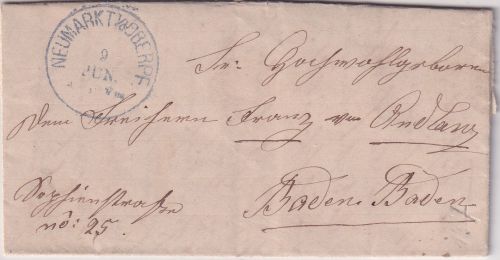 NEUMARKT I/D OBERPF.
9
JUN.
Sr: Hochwohlgeboren
Dem Freiherrn Franz von
Baden-Baden
Sophienstraße
nô: 25.